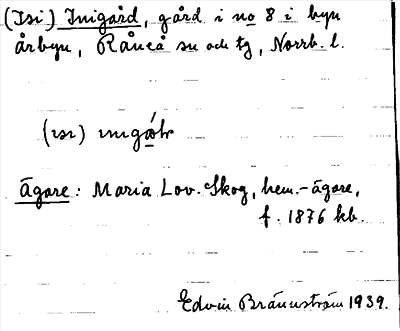 (Isi) Inigård, gård i no 8 i byn
årbyn, Råneå sn och tg, Norrb. l.
(ısı)
Ägare: Maria Lov. Skog, hem.-ägare,
f. 1876 kb.
Edvin Brännström 1939.